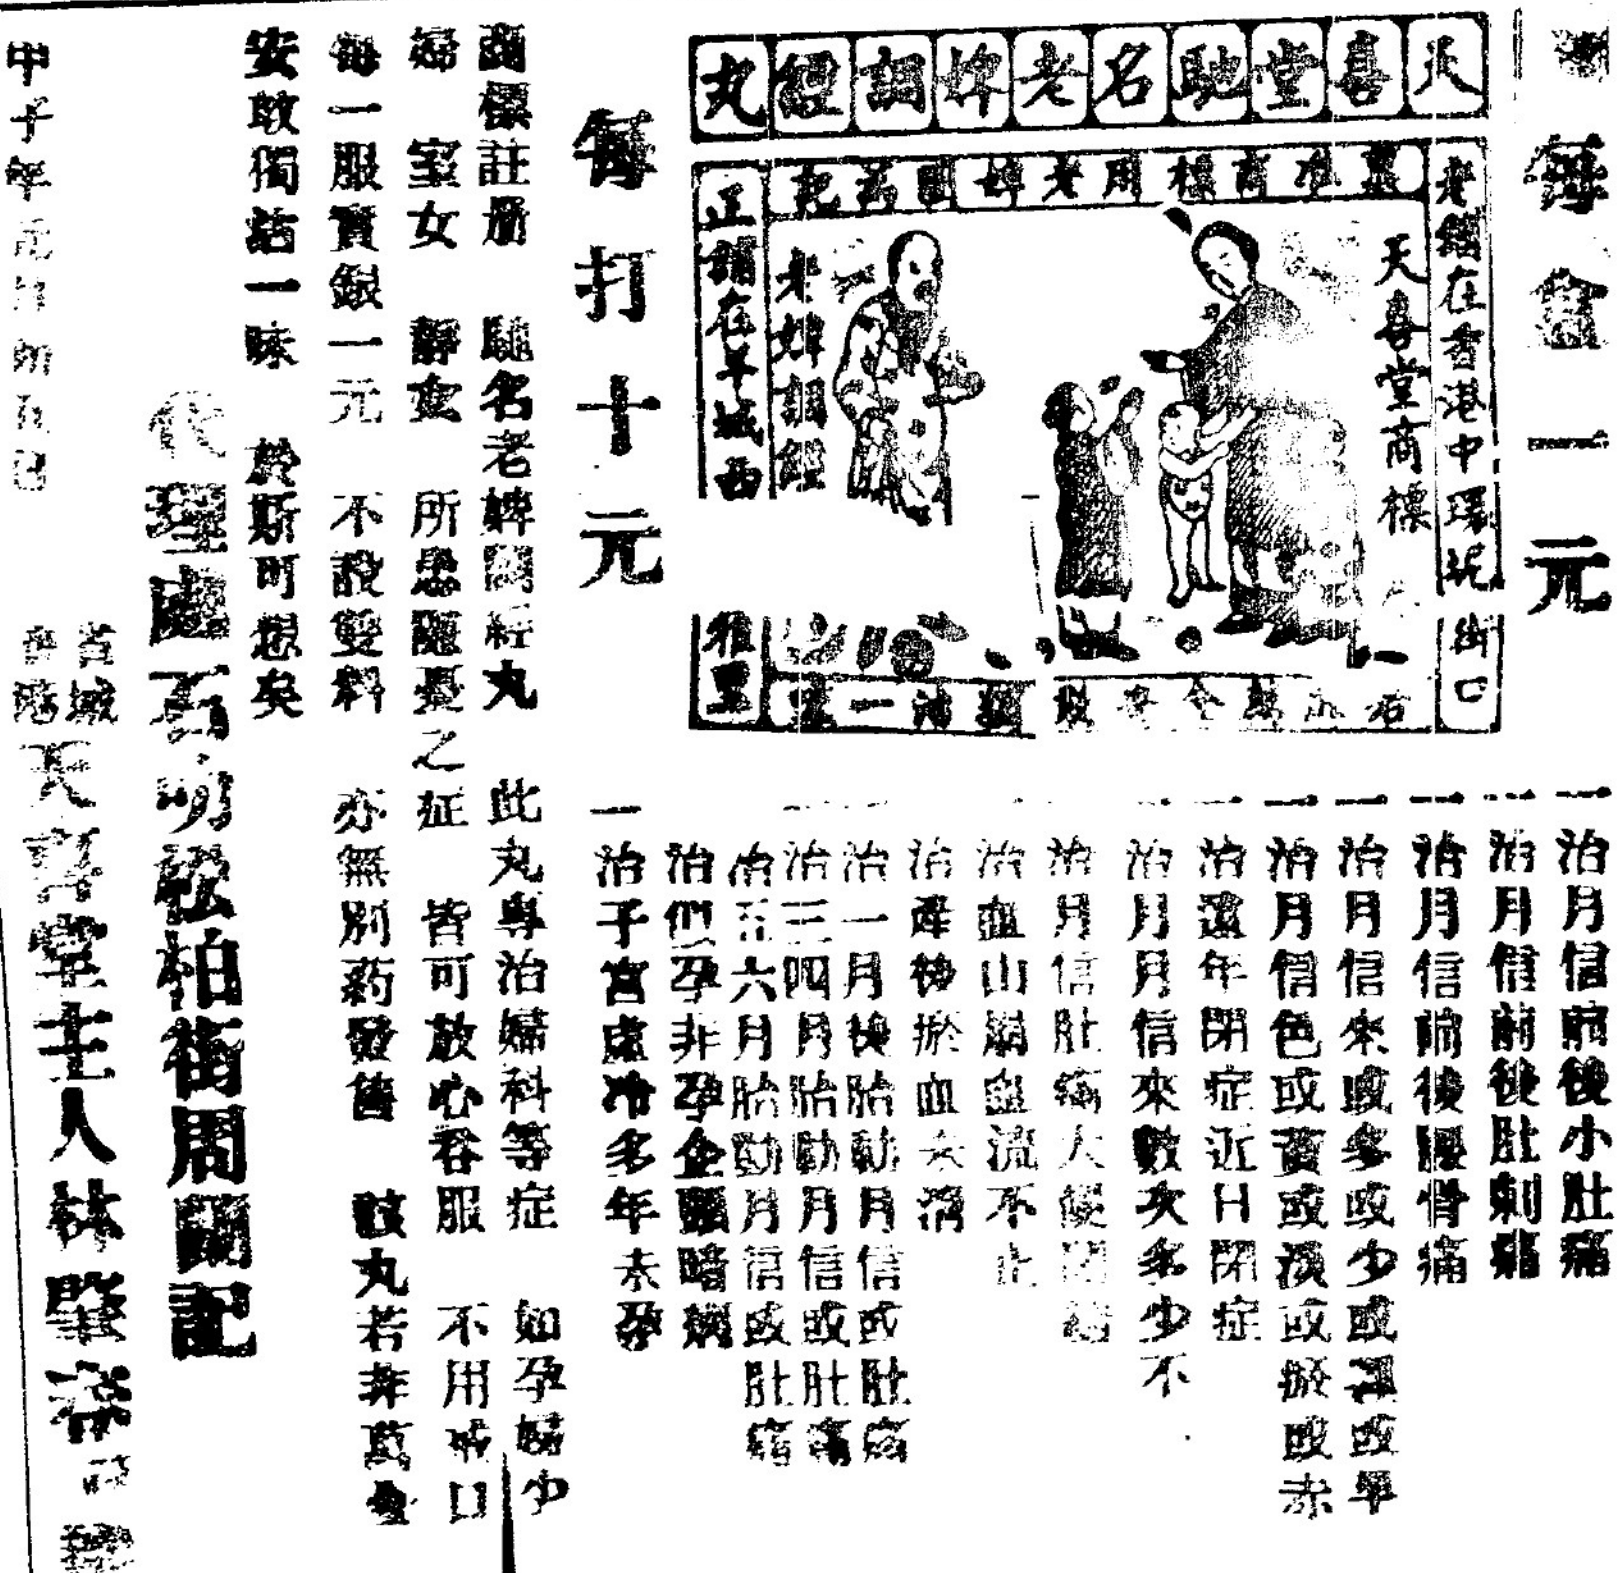 每盒一元
天喜堂馳名老牌調經丸
稟准商標用老牌圖為記
老舖在香港中環坑街口
天喜堂商標
老牌調經
正舖在羊城西
雅里
每打十元
一治月信前後小肚痛
一治月信前後肚刺痛
一治月信前後腰骨痛
一治月信來或多或少或還或早
一治月信色或黃或淡或瘀或赤
一治遠年閉症近日閉症
一治月月信來數次多少不
治月信肚痛大便
治血山崩血流不止
治產後瘀血
一治一月後胎動月信或肚痛
一治三四月胎動月信或肚痛
治五六月胎動月信或肚痛
治們孕非孕企頭暗病
一治子宮虛冷多年未孕
商標註冊 馳名老牌調經丸 此丸專治婦科等症 如孕婦少
婦 室女 靜女 所患隱憂之症 皆可放心吞服 不用戒口
每一服實銀一元 不設雙料 亦無別药發售 該丸若非萬金
安敢獨沽一味 於斯可想矣
代理處 石明松柏街周蘭記
省城 香港 天喜堂主人林肇
甲子年元月初五日